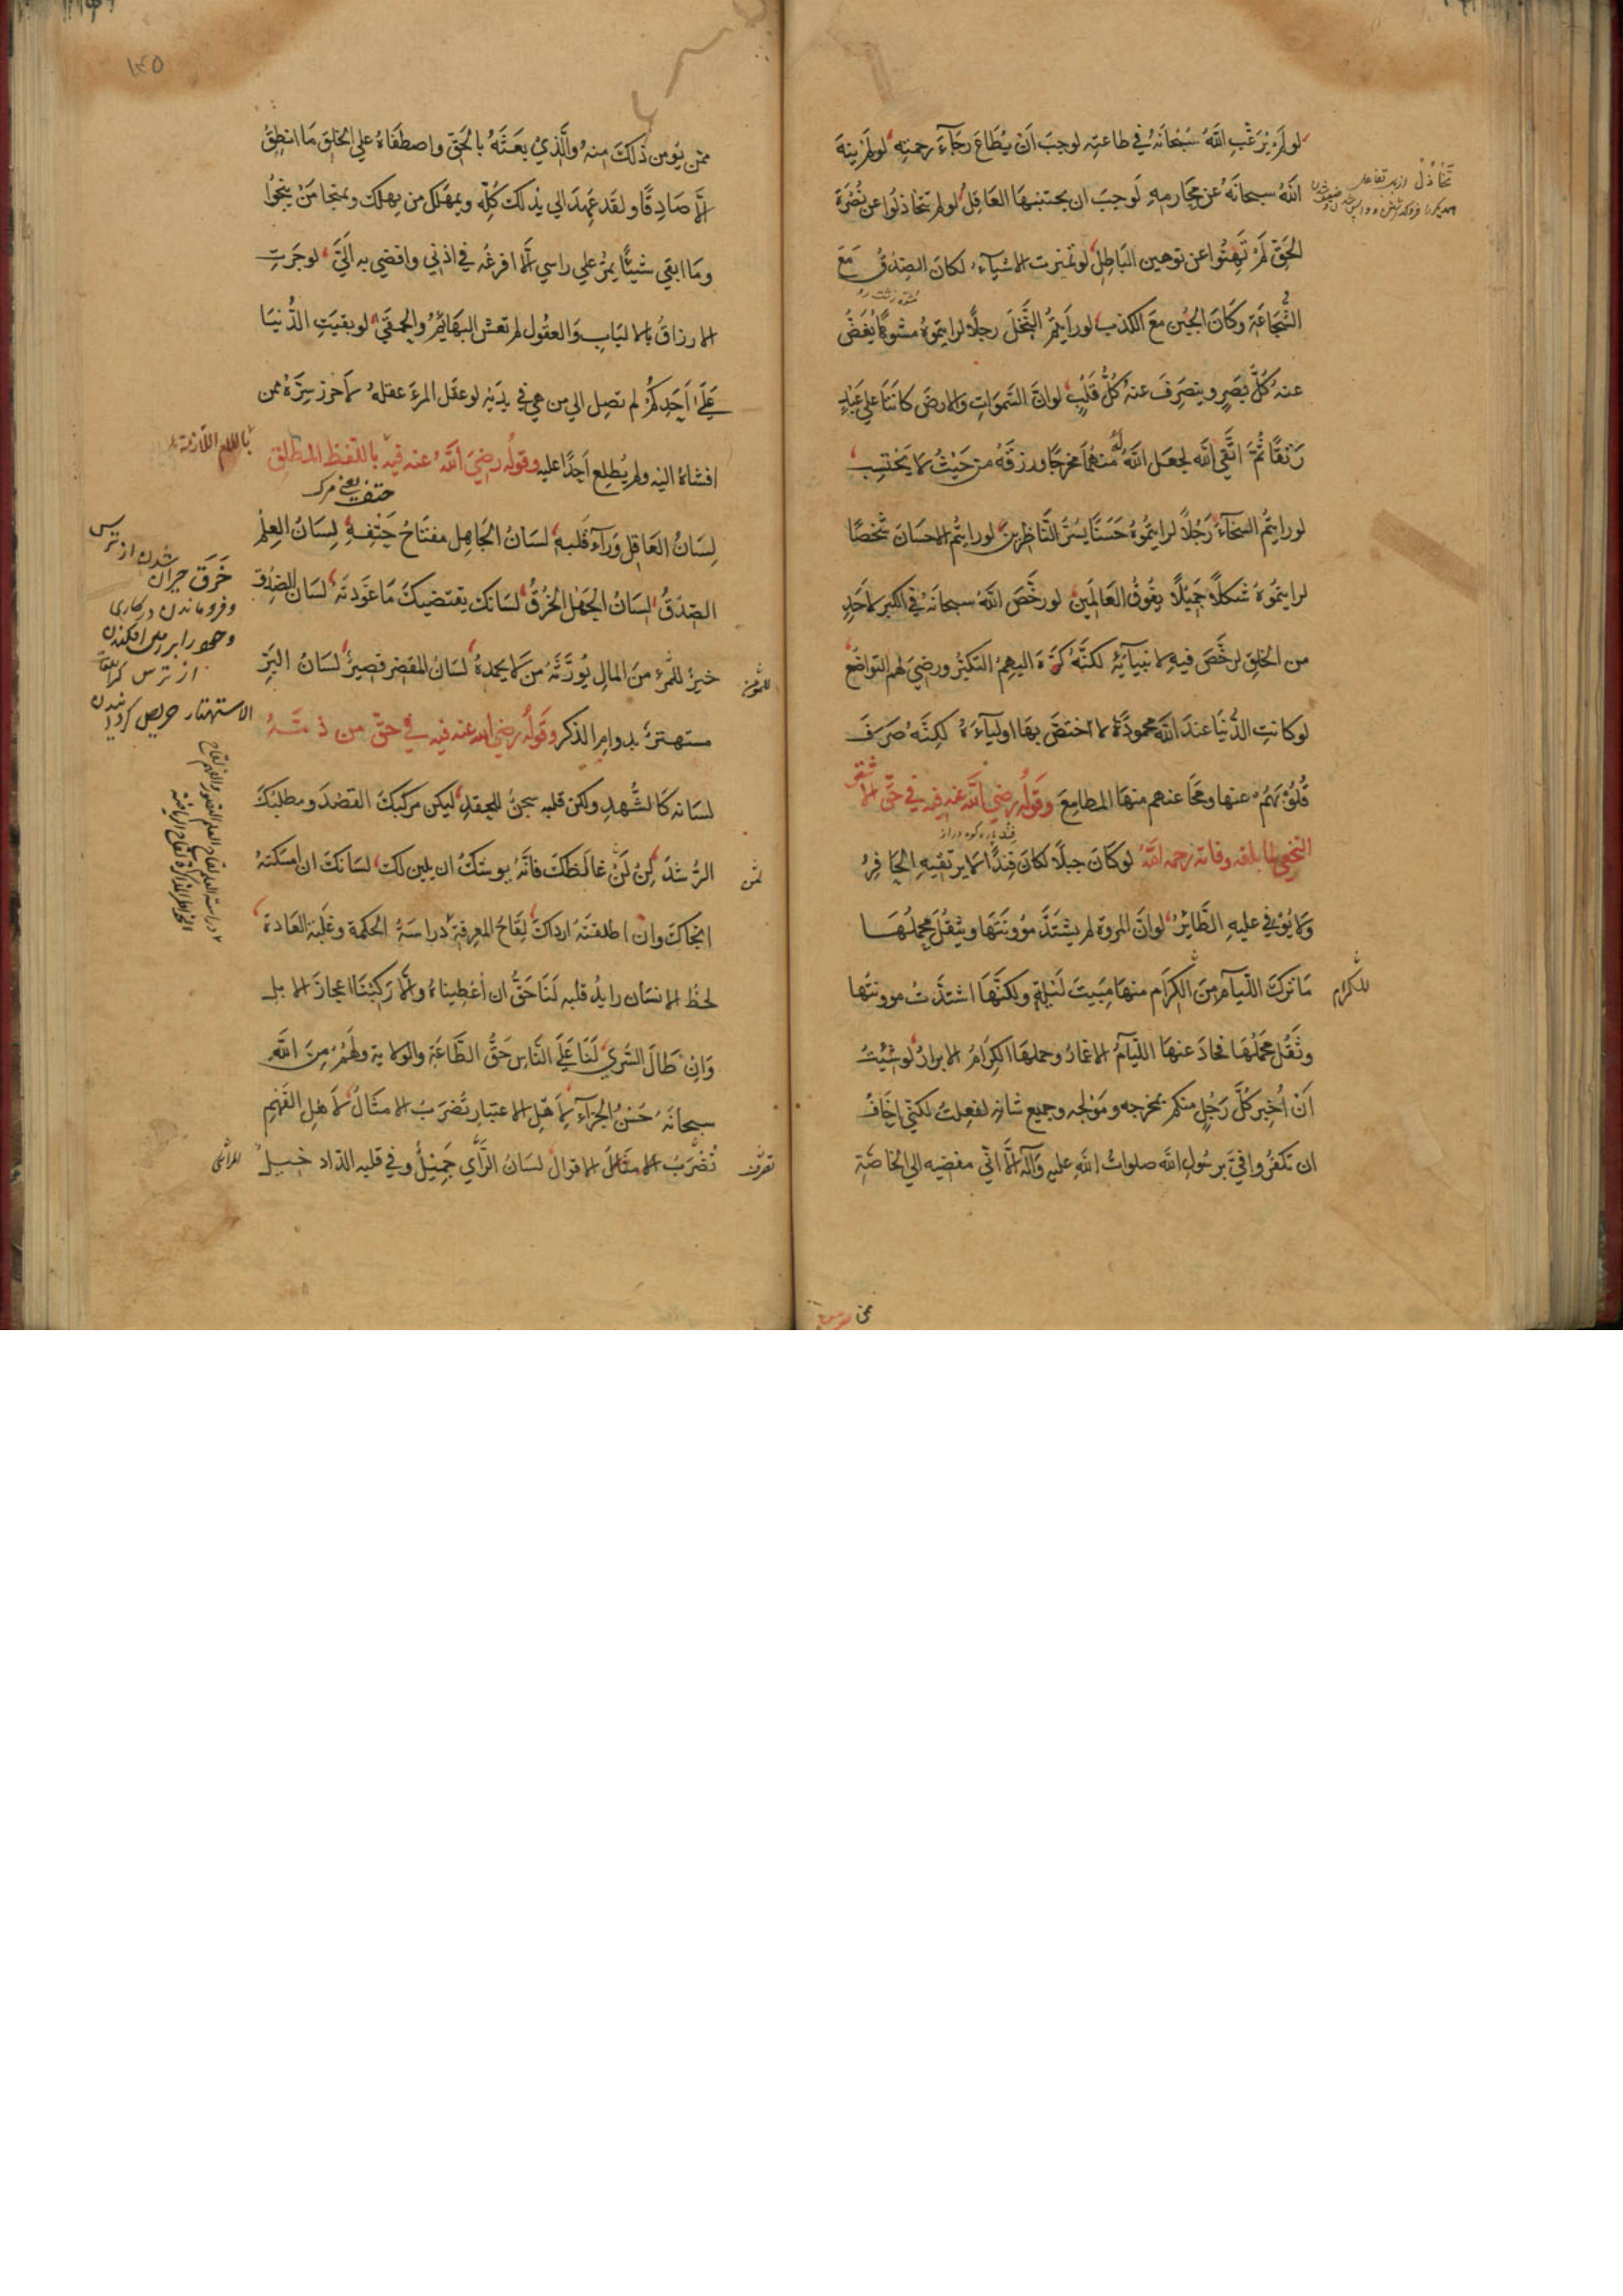 لو لم يرغب الله سبحانه في طاعته لوجب ان يطاع رجاء رحمته لو لم ينه
الله سبحانه عن محارمه لوجب ان يجتنبها العاقل لو لم تتخاذلوا عن نصرة
الحق لم تهنوا عن توهين الباطل لو تميزت الاشياء لكان الصدق مع
الشجاعة وكان الجبن مع الكذب لو رايتم البخل رجلا لرايتموه مشوها يغض
عنه كل بصر وينصرف عنه كل قلب لو ان السموات والارض كانتا على عبد
رتقا ثم اتقى الله لجعل الله له منهما مخرجا ورزقه من حيث لا يحتسب
لو رايتم السخاء رجلا لرايتموه حسنا يسر الناظرين لو رايتم الاحسان شخصا
لرايتموه شكلا جميلا يفوق العالمين لو رخص الله سبحانه في الكبر لاحد
من الخلق لرخص فيه لانبيائه لكنه كره اليهم التكبر ورضي لهم التواضع
لو كانت الدنيا عند الله محمودة لاختص بها اولياءه لكنه صرف
قلوبهم عنها ومحا عنهم منها المطامع وقوله رضي الله عنه فيه في حق الاشتر
النخعي لما بلغه وفاته رحمه الله لو كان جبلا لكان فندا لا يرتقيه الحافر
ولا يوفي عليه الطائر لو ان المروة لم يشتد مؤونتها ويثقل محملها
ما ترك اللئام من الكرام منها مبيت ليلة ولكنها اشتدت مؤونتها
وثقل محملها فحاد عنها اللئام الاغمار وحملها الكرام الابرار لو شئت
ان اخبر كل رجل منكم بمخرجه ومولجه وجميع شانه لفعلت لكني اخاف
ان تكفروا في برسول الله صلوات الله عليه وآله الا اني مفضيه الى الخاصة
للكرام
ممن
١٣٥
ممن يؤمن ذلك منه والذي بعثه بالحق واصطفاه على الخلق ما انطق
الا صادقا ولقد عهد الي بذلك كله وبمهلك من يهلك وبمنجا من ينجوا
وما ابقي شيئا يمر على راسي الا افرغه في اذني وافضي به الي لو جرت
الارزاق بالالباب والعقول لم تعش البهائم والحمقى لو بقيت الدنيا
على احدكم لم تصل الى من هي في يديه لو عقل المرء عقله لاحرز سره ممن
افشاه اليه ولم يطلع احدا عليه وقوله رضي الله عنه فيه باللفظ المطلق
باللام اللازمة
حتف يعني مرك
لسان العاقل وراء قلبه لسان الجاهل مفتاح حتفه لسان العلم
الصدق لسان الجهل الخرق لسانك يقتضيك ما عودته لسان الصدق
خير للمرء من المال يورثه من لا يحمده لسان المقصر قصير لسان البر
مستهتر بدوام الذكر وقوله رضي الله عنه فيه في حق من ذمه
لسانه كالشهد ولكن قلبه سجن للحقد ليكن مركبك القصد ومطلبك
الرشد لن لمن غالظك فانه يوشك ان يلين لك لسانك ان امسكته
انجاك وان اطلقته ارداك لقاح المعرفة دراسة الحكمة وغلبة العادة
لحظ الانسان رايد قلبه لنا حق ان اعطيناه والا ركبنا اعجاز الابل
وان طال السرى لنا على الناس حق الطاعة والولاية ولهم من الله
سبحانه حسن الجزاء لاهل الاعتبار تضرب الامثال لاهل الفهم
تضرب الاقوال لسان الرأي جميل وفي قلبه الداء خبيل
خرق حيران شدن از ترس
وفروماندن در كاري
از ترس
الاستهتار حريص كردانيدن